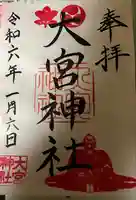 奉拝
大宮神社
令和六年一月六日
大宮
神社